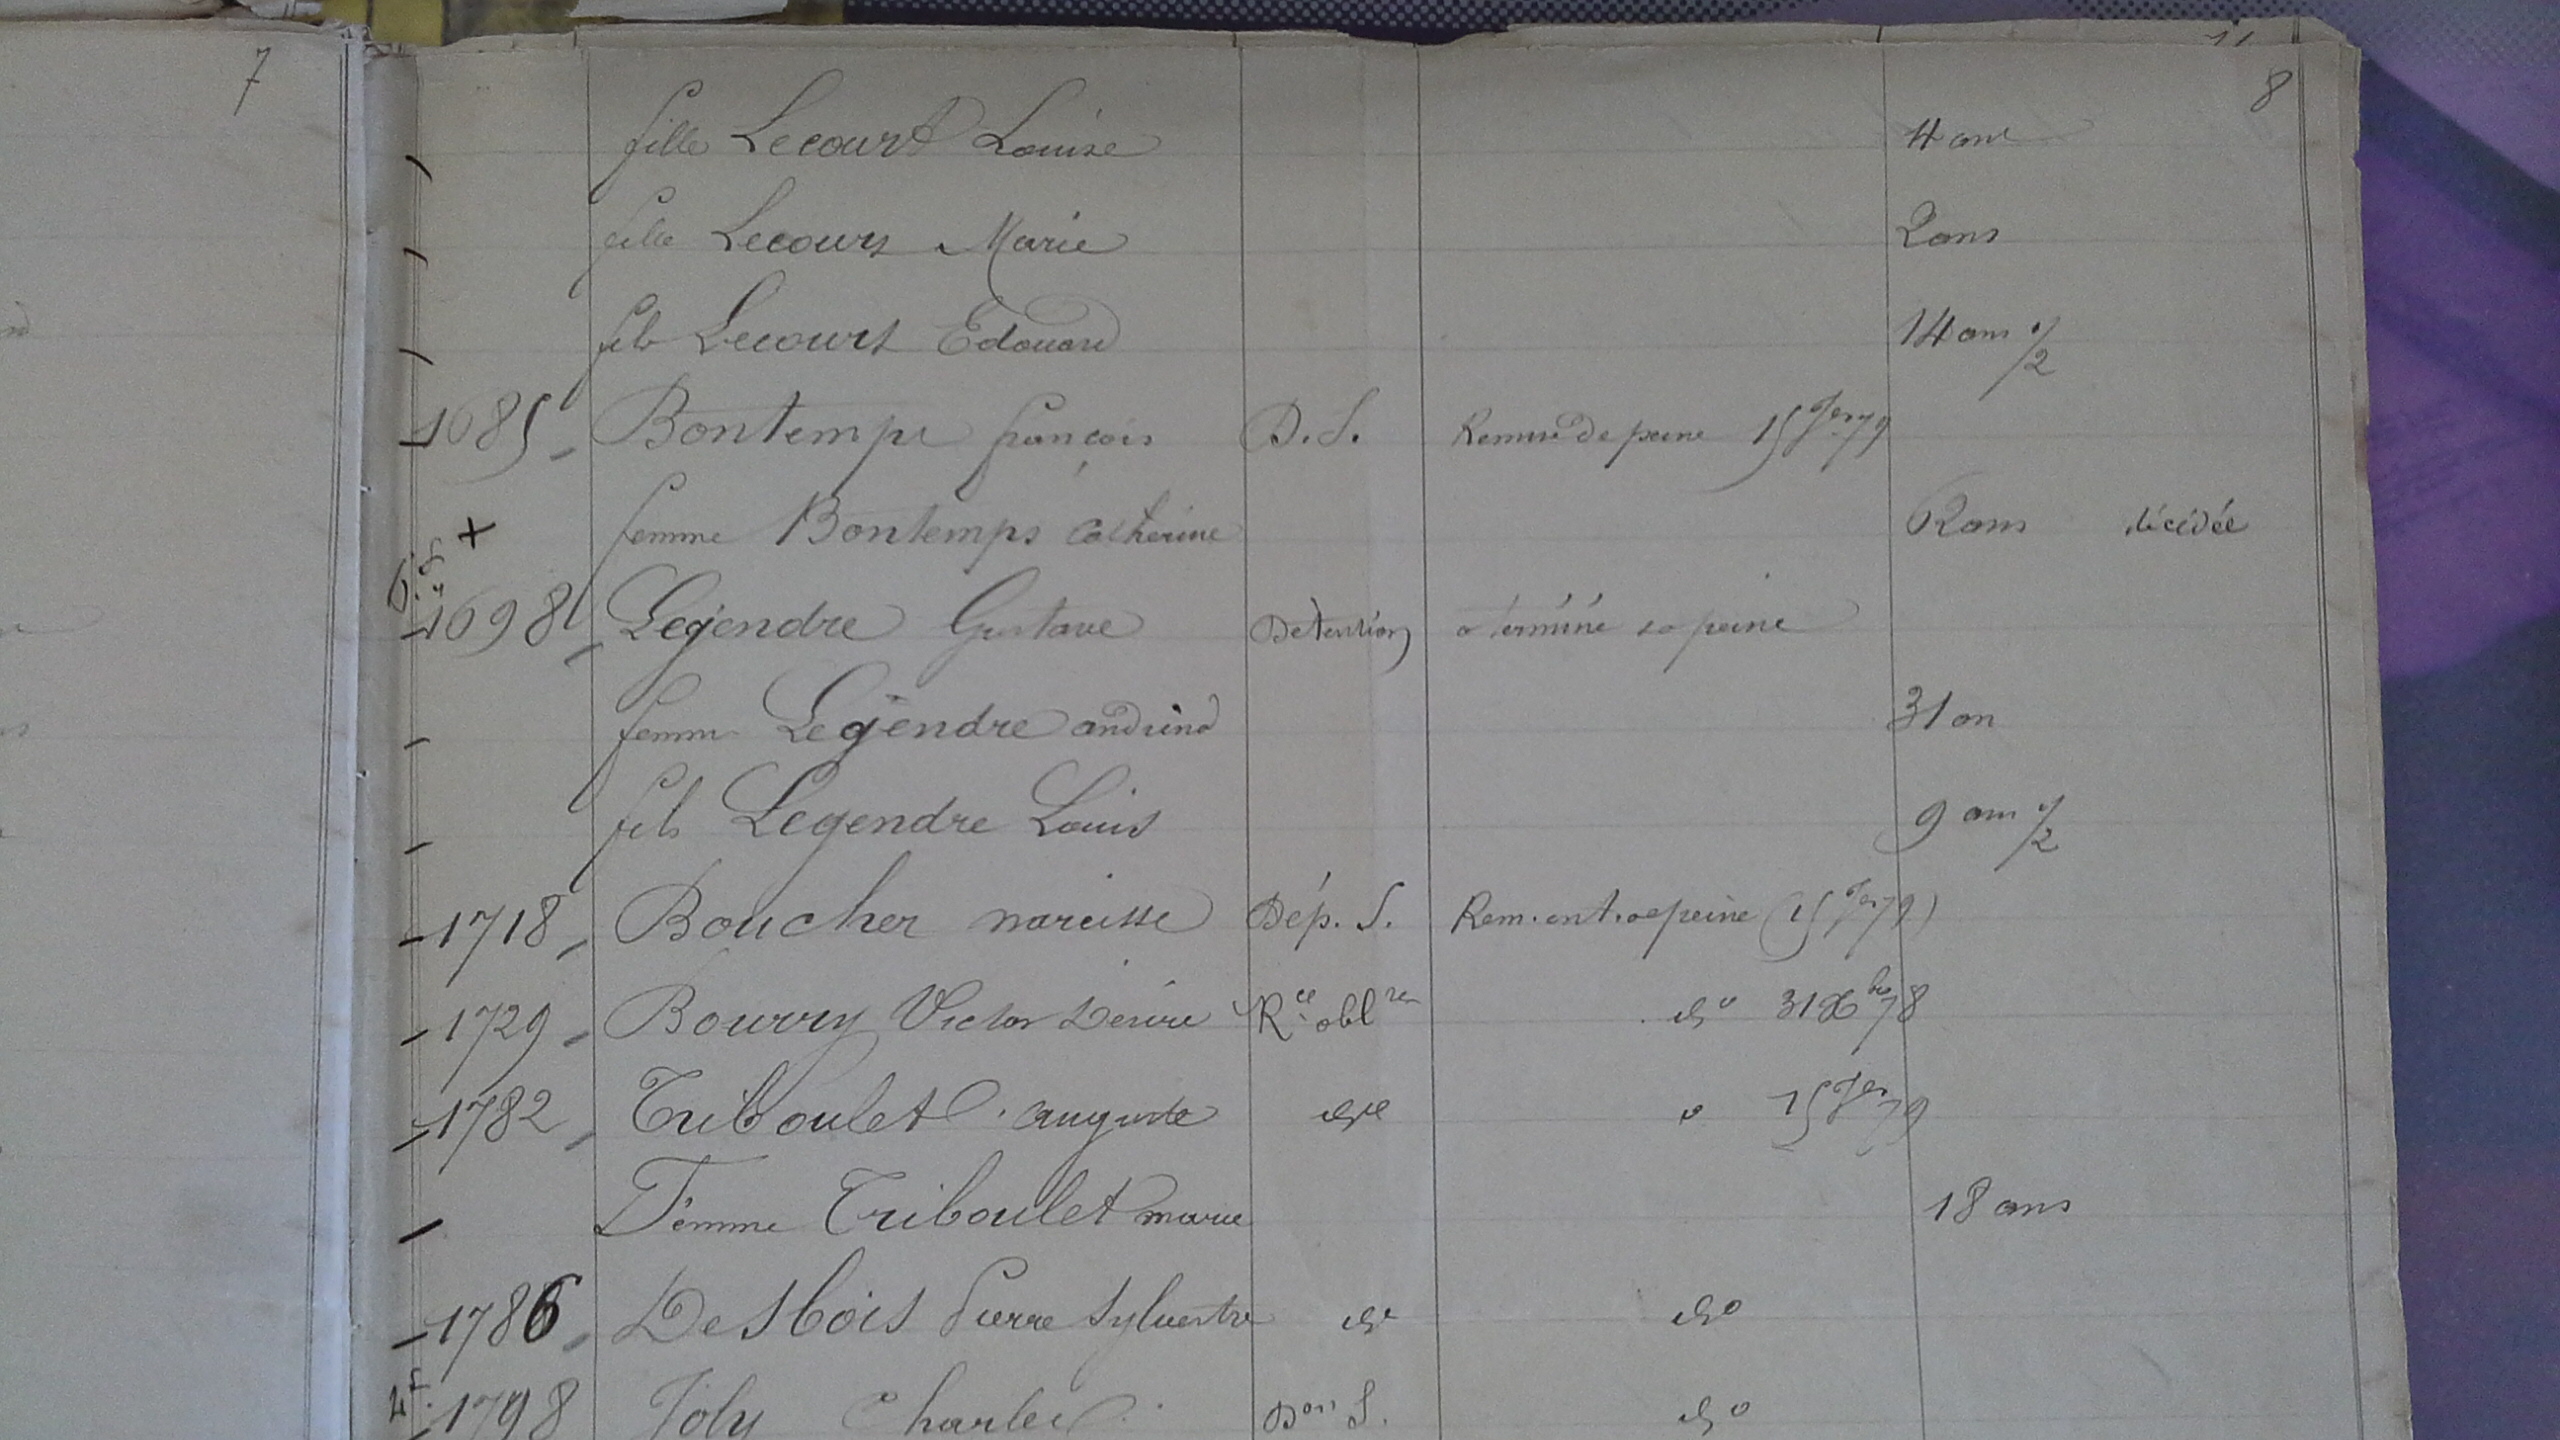 7
8
fille Lecourt Louise 4 ans
fille Lecourt Marie 2 ans
fils Lecourt Edouard 14 ans 1/2
1685 Bontemps françois D. S. Remise de peine 15 Jer 79
+ femme Bontemps Catherine 62 ans décédée
1698 Legendre Gustave Détention a términé sa peine
femme Legendre 31 an
fils Legendre Louis 9 ans 1/2
1718 Boucher narcisse Dép. S. Rem. ent. de peine (15 Jer 79)
1729 Bourry Victor Désiré Rce oblre do 31 Xbre 78
1782 Triboulet auguste do o 15 Jer 79
Femme Triboulet marie 18 ans
1786 Desbois Pierre Sylvestre do do
1798 Joly Charles Don S. do